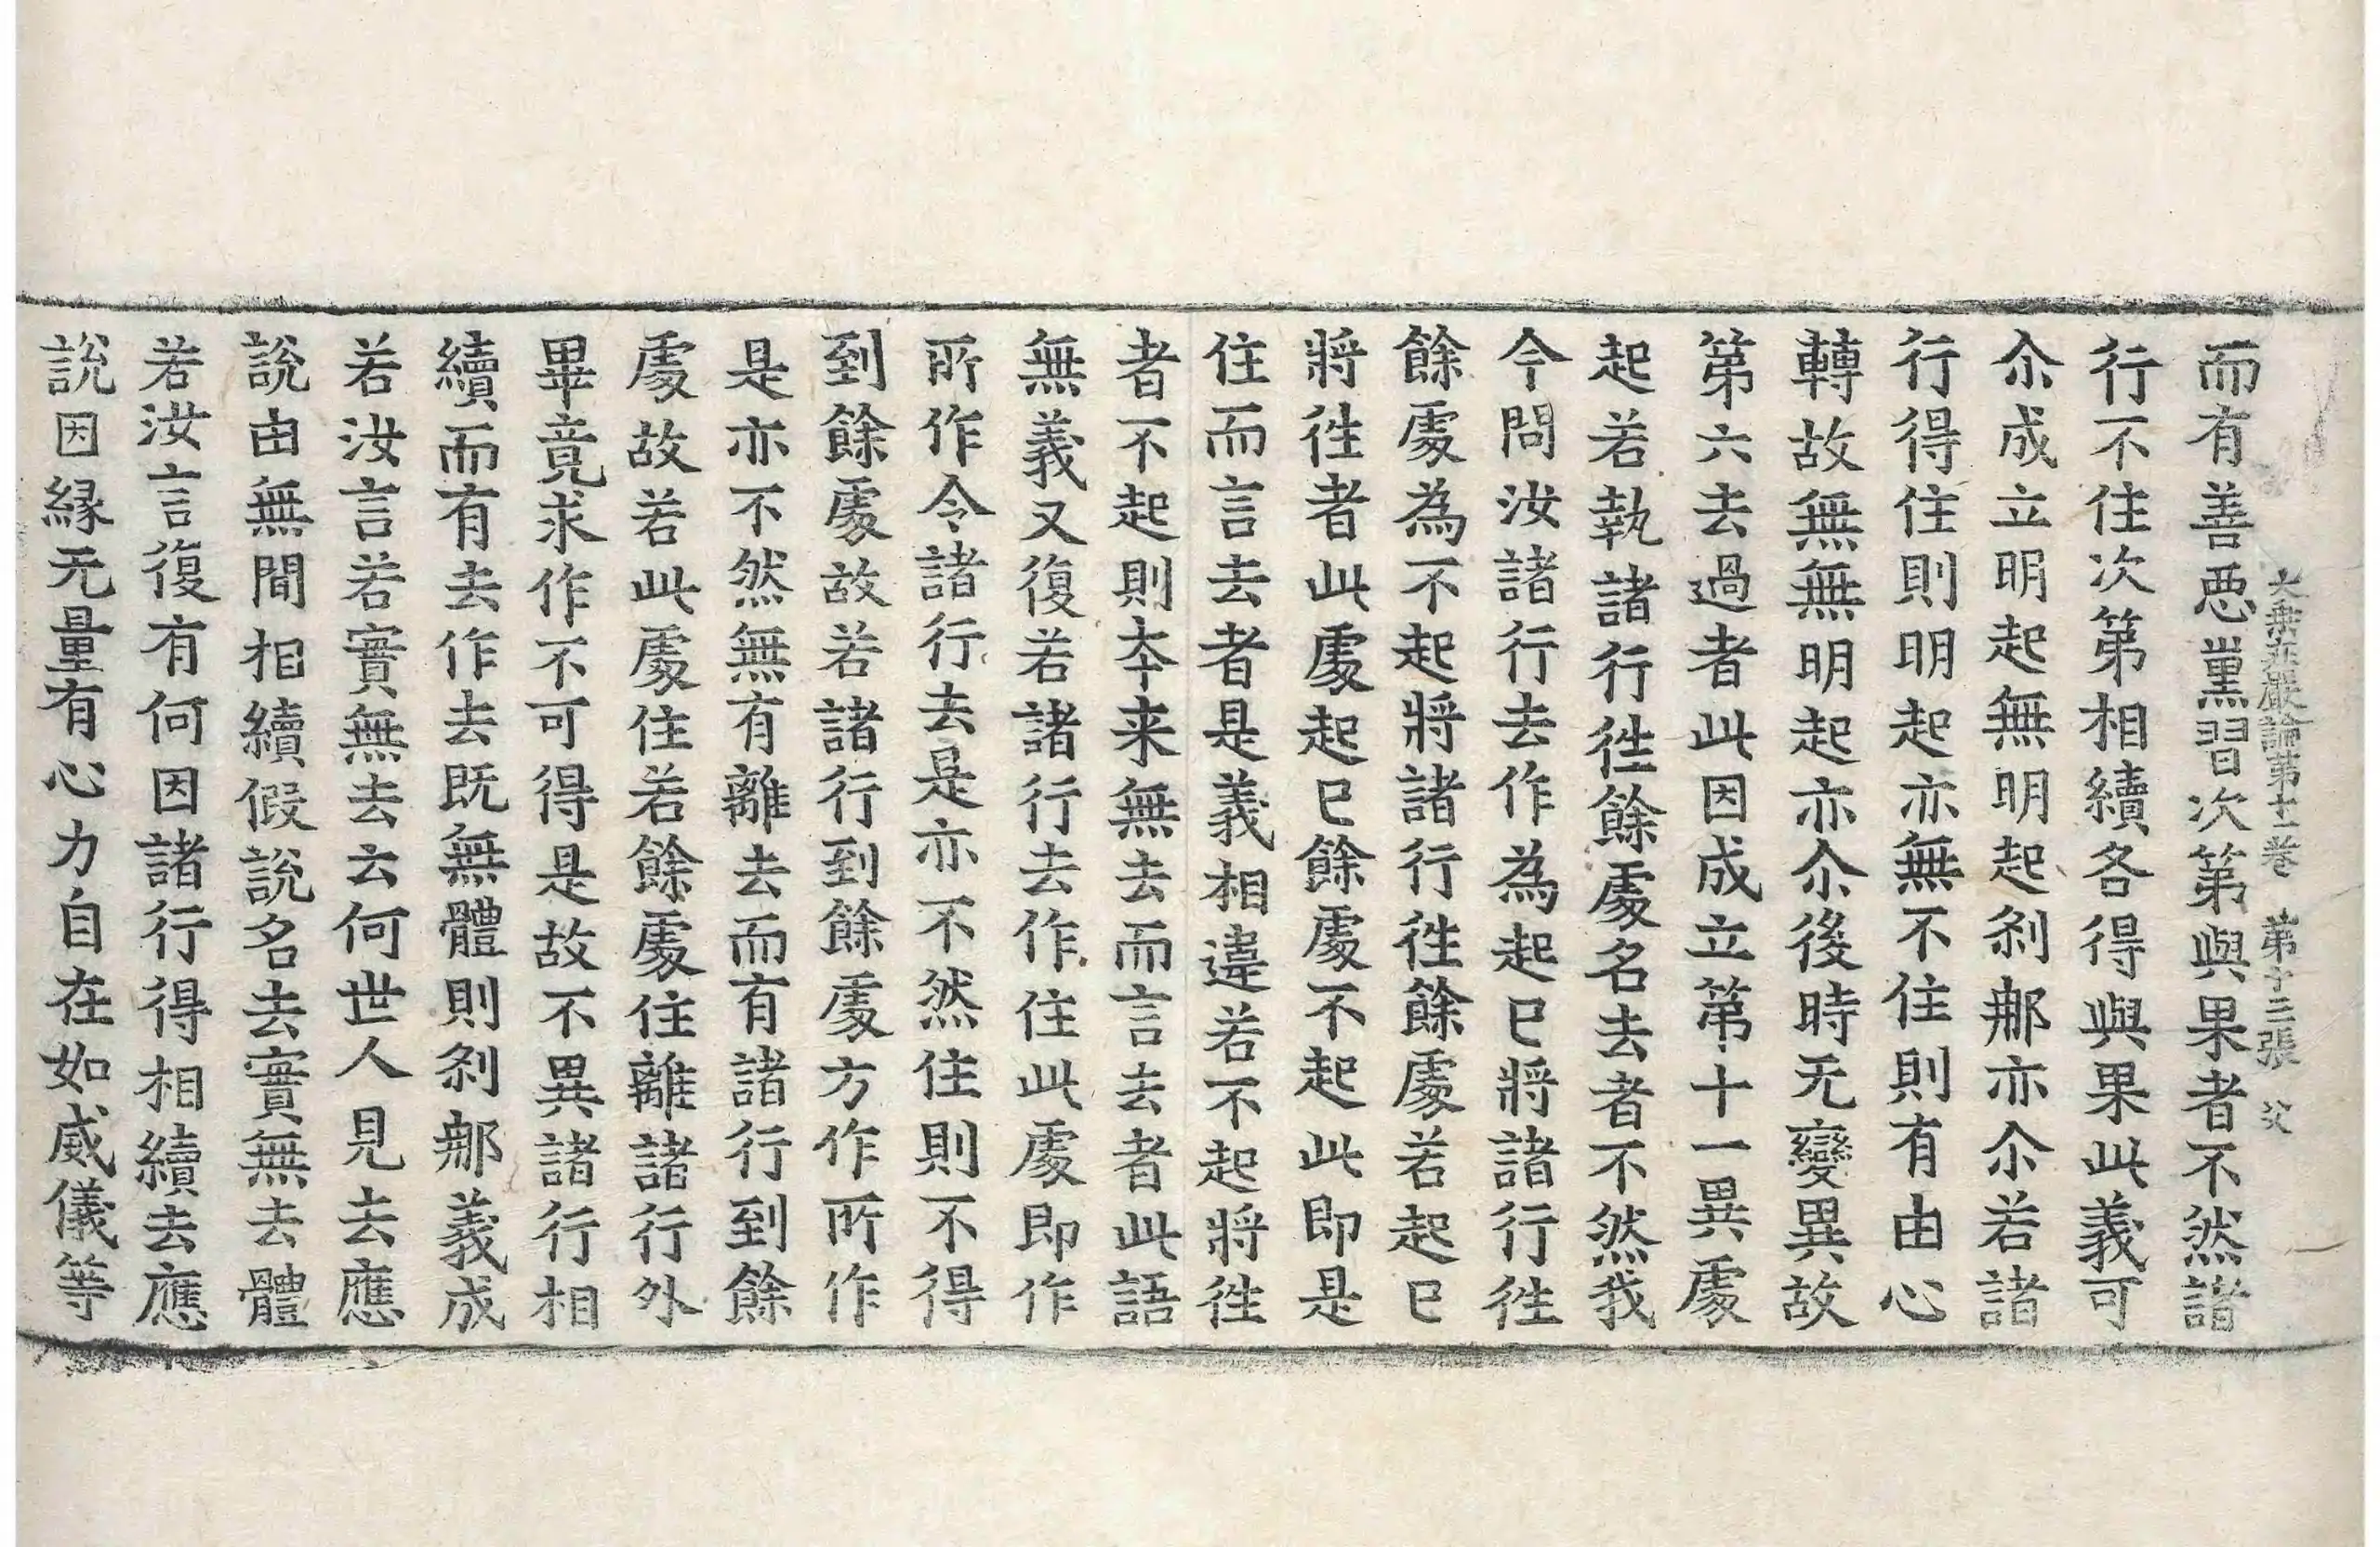 大乘莊嚴論第十一卷　第十三張　父
而有善惡熏習次第與果者不然諸
行不住次第相續各得與果此義可
尒成立明起無明起刹那亦尒若諸
行得住則明起亦無不住則有由心
轉故無無明起亦尒後時无變異故
第六去過者此因成立第十一異處
起若執諸行徃餘處名去者不然我
今問汝諸行去作為起巳將諸行徃
餘處為不起將諸行徃餘處若起巳
將徃者此處起巳餘處不起此即是
住而言去者是義相違若不起將徃
者不起則本来無去而言去者此語
無義又復若諸行去作住此處即作
所作令諸行去是亦不然住則不得
到餘處故若諸行到餘處方作所作
是亦不然無有離去而有諸行到餘
處故若此處住若餘處住離諸行外
畢竟求作不可得是故不異諸行相
續而有去作去既無體則刹那義成
若汝言若實無去云何世人見去應
說由無間相續假說名去實無去體
若汝言復有何因諸行得相續去應
說因縁无量有心力自在如威儀等